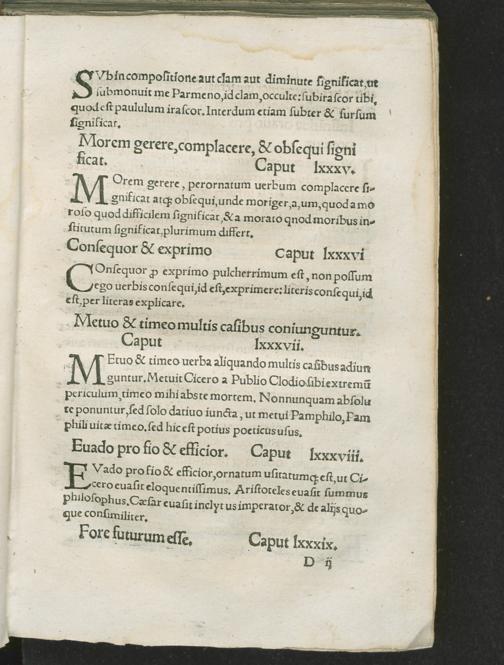 SVb in compositione aut clam aut diminute significat, ut
submonuit me Parmeno, id clam, occulte: subirascor tibi,
quod est paululum irascor. Interdum etiam subter & sursum
significat.
Morem gerere, complacere, & obsequi signi
ficat. Caput lxxxv.
MOrem gerere, perornatum uerbum complacere si-
gnificat atqꝫ obsequi, unde moriger, a, um, quod a mo
roso quod difficilem significat, & a morato qnod moribus in-
stitutum significat, plurimum differt.
Consequor & exprimo Caput lxxxvi
COnsequor ꝓ exprimo pulcherrimum est, non possum
ego uerbis consequi, id est, exprimere: literis consequi, id
est, per literas explicare.
Metuo & timeo multis casibus coniunguntur.
Caput lxxxvii.
MEtuo & timeo uerba aliquando multis casibus adiun
guntur. Metuit Cicero a Publio Clodio sibi extremũ
periculum, timeo mihi abs te mortem. Nonnunquam absolu
te ponuntur, sed solo datiuo iuncta, ut metui Pamphilo, Pam
phili uitæ timeo. sed hic est potius poeticus usus.
Euado pro fio & efficior. Caput lxxxviii.
EVado pro fio & efficior, ornatum usitatumqꝫ est, ut Ci-
cero euasit eloquentissimus. Aristoteles euasit summus
philosophus. Cæsar euasit inclytus imperator, & de alijs quo-
que consimiliter.
Fore futurum esse. Caput lxxxix.
D ij